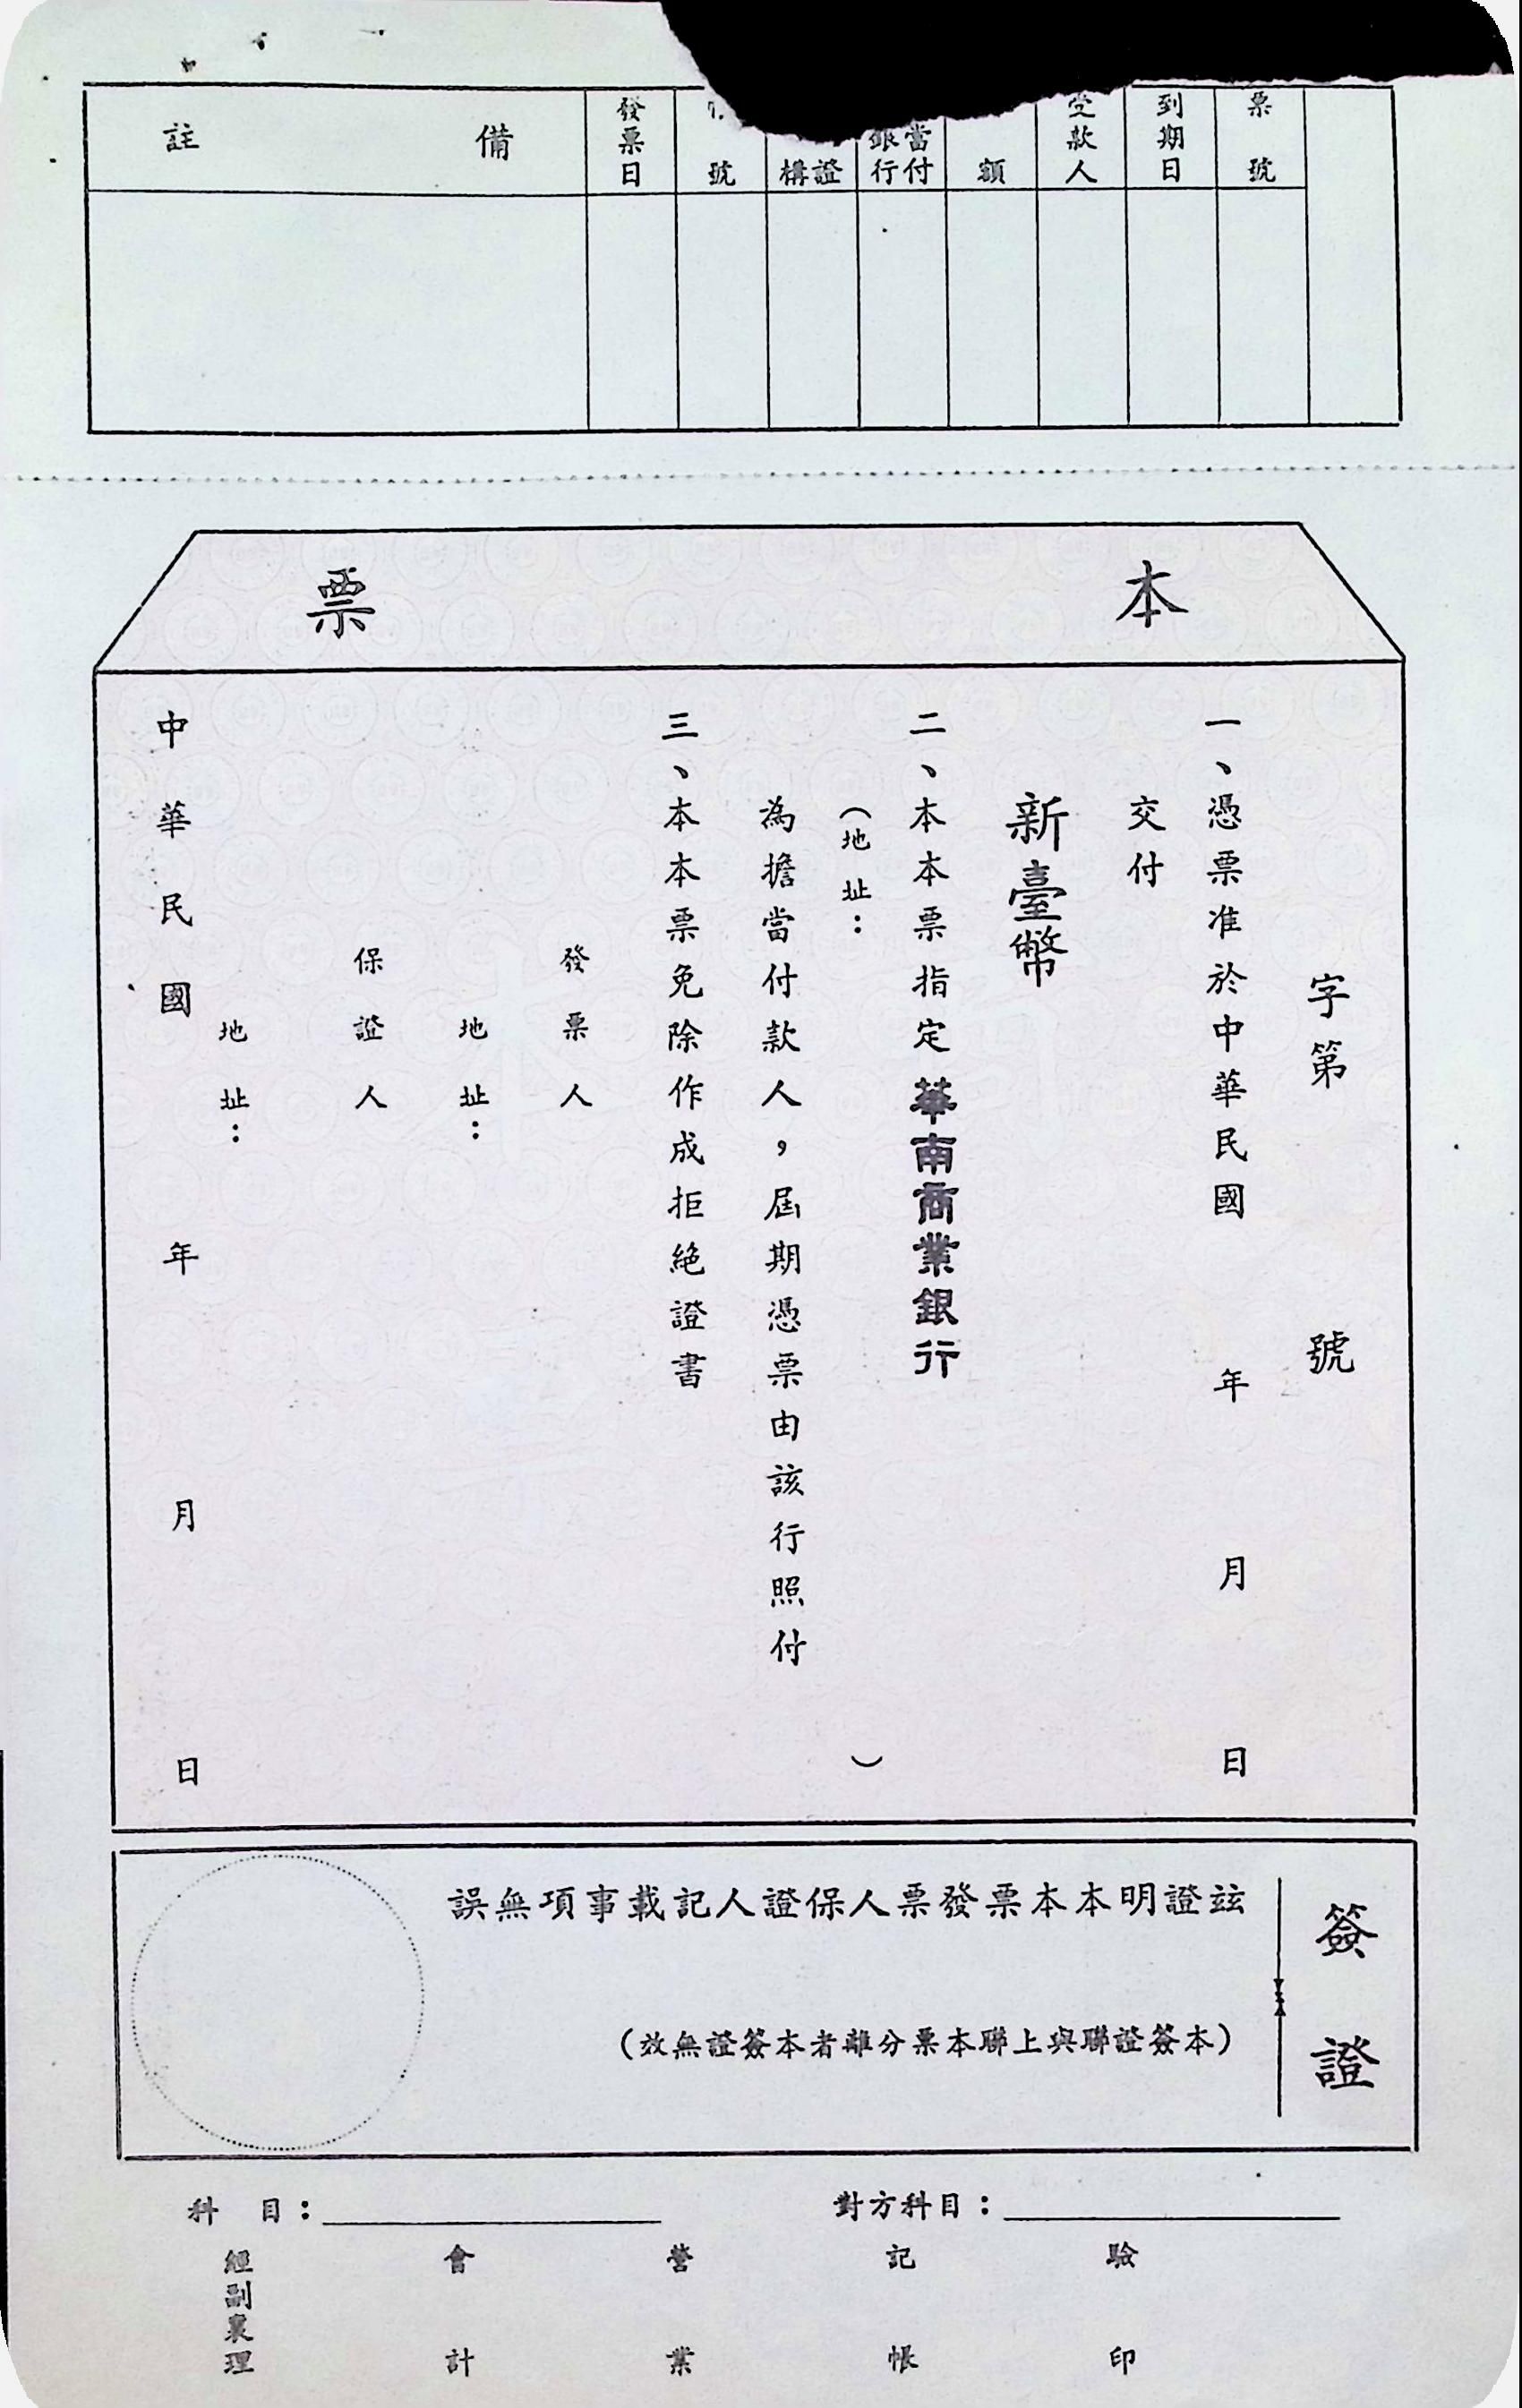 票號
到期日
受款人
額
當付銀行
證構
號
發票日
備註
本票
字第號
一、憑票准於中華民國年月日
交付
新臺幣
二、本本票指定華南商業銀行
（地址：）
為擔當付款人，屆期憑票由該行照付
三、本本票免除作成拒絕證書
發票人
地址：
保證人
地址：
中華民國年月日
簽證
玆證明本本票發票人保證人記載事項無誤
（本簽證聯與上聯本票分離者本簽證無效）
對方科目：
科目：
驗印
記帳
營業
會計
經副襄理